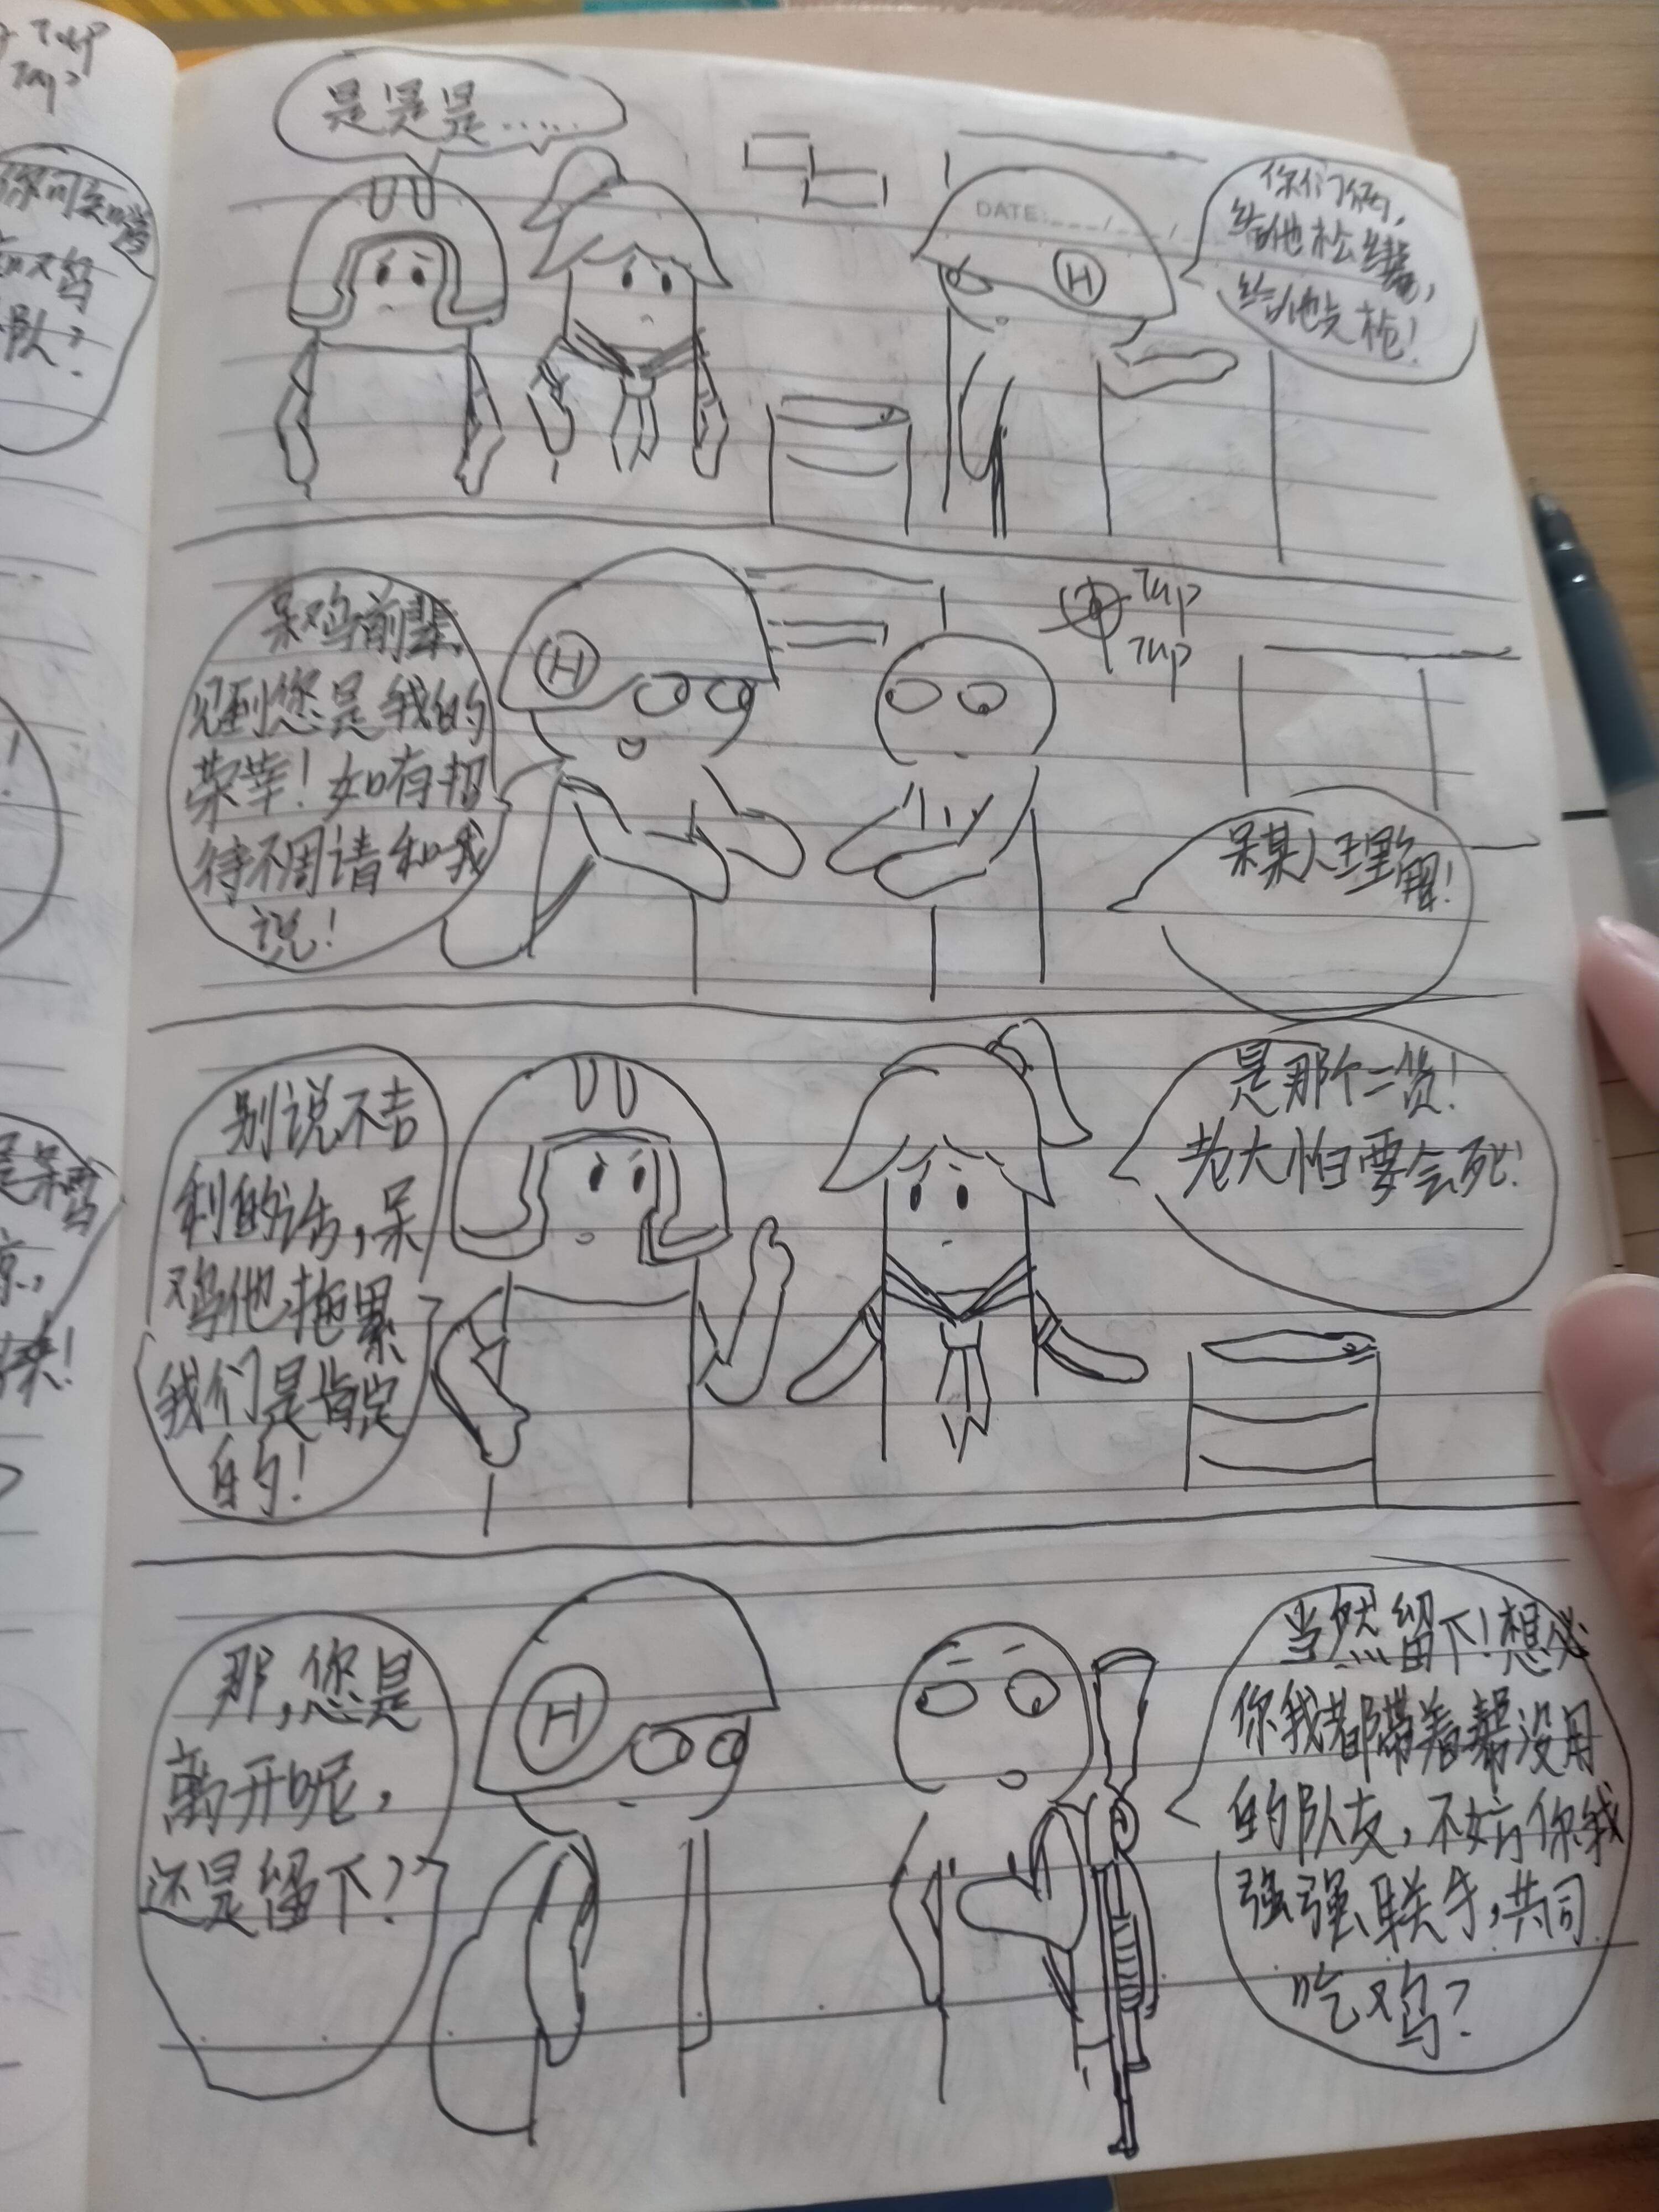 是是是……
DATE:
你们俩,
给他松绑,
给他枪!
H
呆鸡前辈,
见到您是我的
荣幸!如有招
待不周请和我
说!
H
Tup
Tup
呆某人理解!
别说不吉
利的话,呆
鸡他拖累
我们是肯定
的!
是那个二货!
老大怕要会死!
那,您是
离开呢,
还是留下?
H
当然留下!想必
你我都带着帮没用
的队友,不妨你我
强强联手,共同
吃鸡?